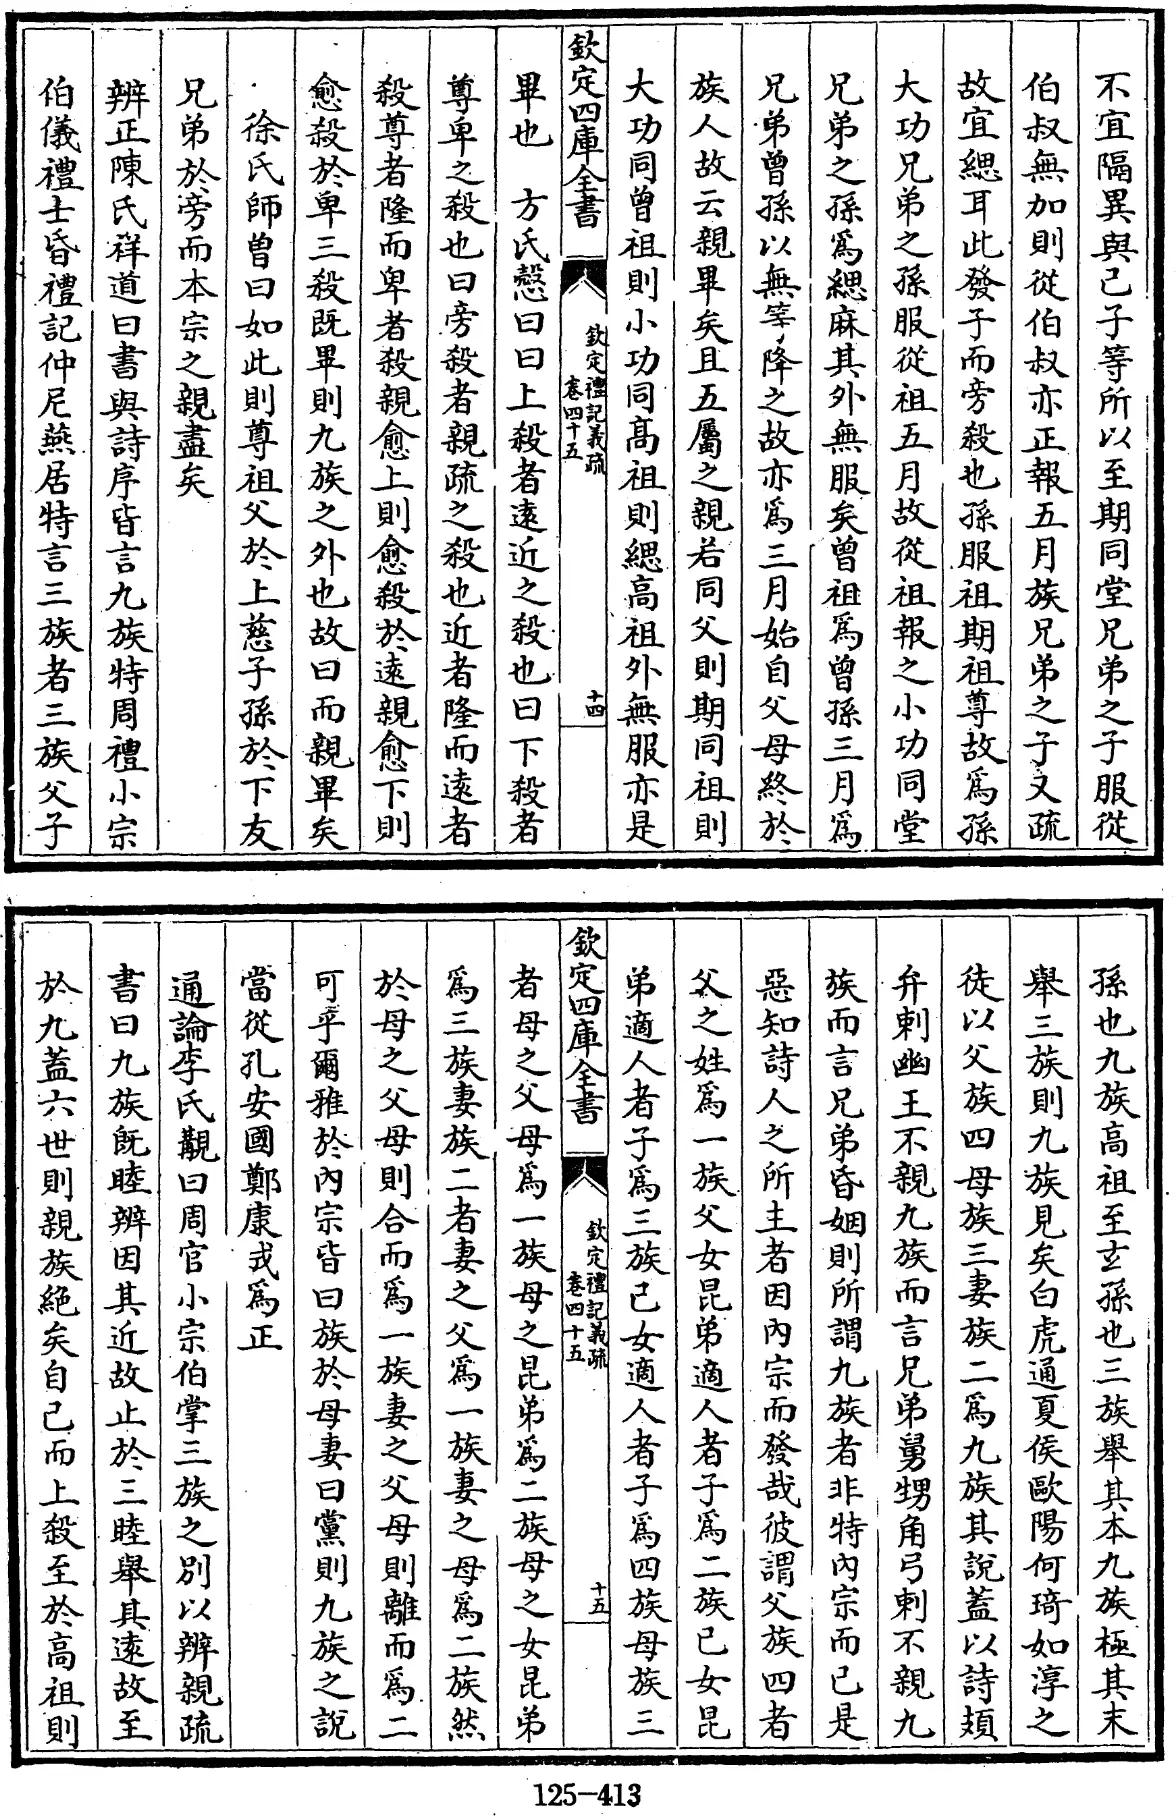 不宜隔異與己子等所以至期同堂兄弟之子服從
伯叔無加則從伯叔亦正報五月族兄弟之子又疏
故宜緦耳此發子而旁殺也孫服祖期祖尊故爲孫
大功兄弟之孫服從祖五月故從祖報之小功同堂
兄弟之孫爲緦麻其外無服矣曾祖爲曾孫三月爲
兄弟曾孫以無等降之故亦爲三月始自父母終於
族人故云親畢矣且五屬之親若同父則期同祖則
大功同曾祖則小功同高祖則緦高祖外無服亦是
欽定四庫全書
欽定禮記義疏
卷四十五
十四
畢也　方氏慤曰曰上殺者遠近之殺也曰下殺者
尊卑之殺也曰旁殺者親疏之殺也近者隆而遠者
殺尊者隆而卑者殺親愈上則愈殺於遠親愈下則
愈殺於卑三殺既畢則九族之外也故曰而親畢矣
徐氏師曾曰如此則尊祖父於上慈子孫於下友
兄弟於旁而本宗之親盡矣
辨正陳氏祥道曰書與詩序皆言九族特周禮小宗
伯儀禮士昏禮記仲尼燕居特言三族者三族父子
孫也九族高祖至玄孫也三族舉其本九族極其末
舉三族則九族見矣白虎通夏侯歐陽何琦如淳之
徒以父族四母族三妻族二爲九族其說蓋以詩頍
弁刺幽王不親九族而言兄弟舅甥角弓刺不親九
族而言兄弟昏姻則所謂九族者非特內宗而已是
惡知詩人之所主者因內宗而發哉彼謂父族四者
父之姓爲一族父女昆弟適人者子爲二族己女昆
弟適人者子爲三族己女適人者子爲四族母族三
欽定四庫全書
欽定禮記義疏
卷四十五
十五
者母之父母爲一族母之昆弟爲二族母之女昆弟
爲三族妻族二者妻之父爲一族妻之母爲二族然
於母之父母則合而爲一族妻之父母則離而爲二
可乎爾雅於內宗皆曰族於母妻曰黨則九族之說
當從孔安國鄭康成爲正
通論李氏覯曰周官小宗伯掌三族之別以辨親疏
書曰九族既睦辨因其近故止於三睦舉其遠故至
於九蓋六世則親族絕矣自己而上殺至於高祖則
125-413